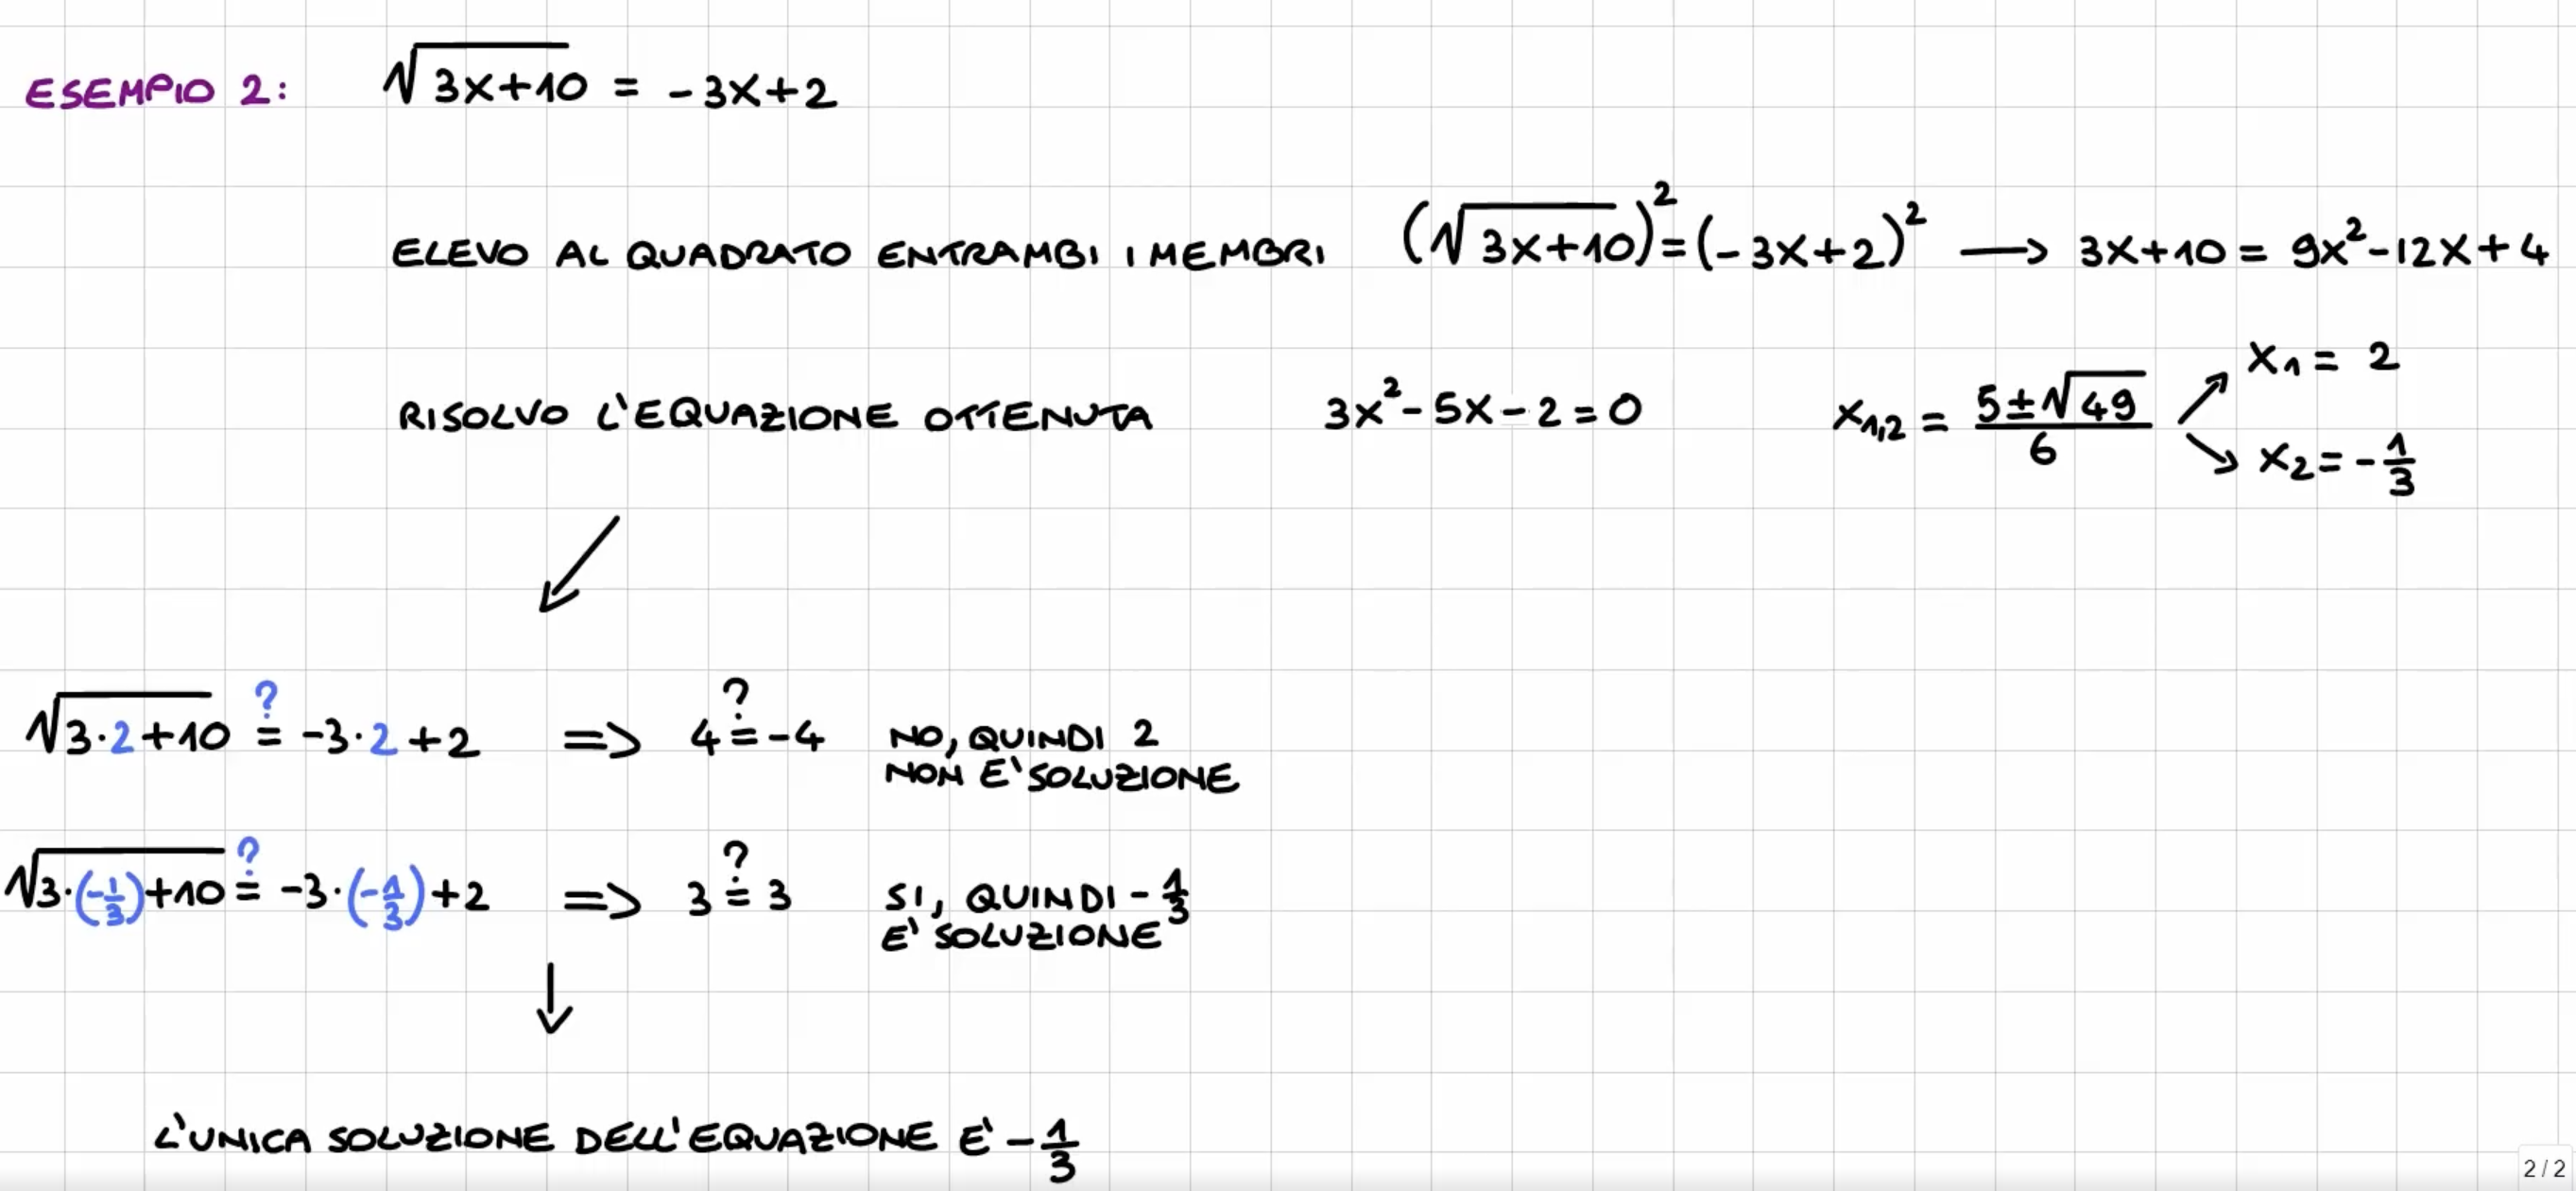 ESEMPIO 2: √(3x+10) = -3x+2
ELEVO AL QUADRATO ENTRAMBI I MEMBRI (√(3x+10))² = (-3x+2)² → 3x+10 = 9x²-12x+4
RISOLVO L'EQUAZIONE OTTENUTA 3x²-5x-2=0 x₁,₂ = (5±√49)/6 ↗ x₁ = 2 ↘ x₂ = -1/3
√(3·2+10) ≟ -3·2+2 => 4 ≟ -4 NO, QUINDI 2
NON E' SOLUZIONE
√(3·(-1/3)+10) ≟ -3·(-1/3)+2 => 3 ≟ 3 SI, QUINDI -1/3
E' SOLUZIONE
L'UNICA SOLUZIONE DELL'EQUAZIONE E' -1/3
2/2